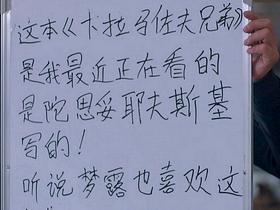 这本《卡拉马佐夫兄弟》
是我最近正在看的
是陀思妥耶夫斯基
写的!
听说梦露也喜欢这